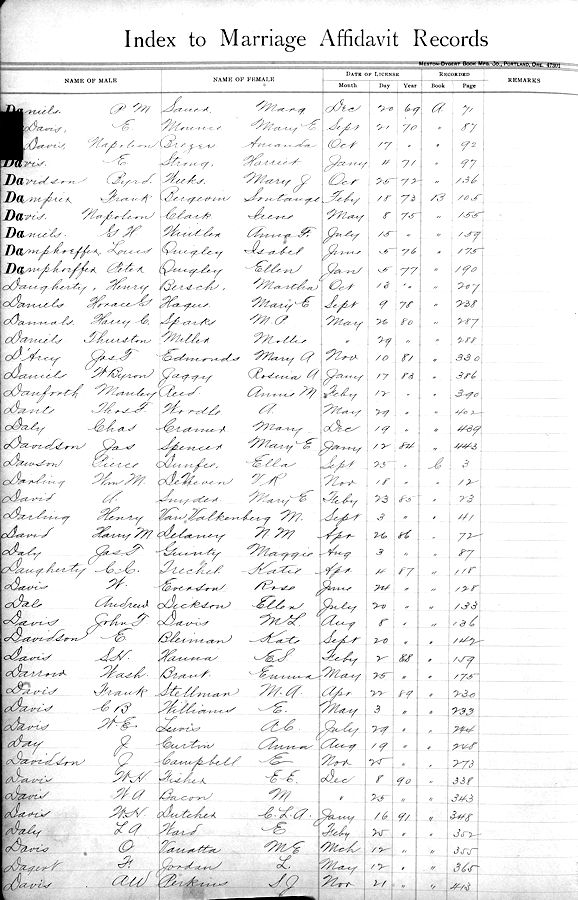 Index to Marriage Affidavit Records
MESTON-DYGERT BOOK MFG. CO., PORTLAND, ORE. 47301
NAME OF MALE NAME OF FEMALE DATE OF LICENSE RECORDED REMARKS
Month Day Year Book Page
Daniels P M Mary Dec 20 69 A 71
Davis, E Mary E Sept 21 70 " 87
Davis Napoleon Amanda Oct 17 " " 92
Davis. E Strong, Harriet Jany 4 71 " 97
Davidson Byrd. Weeks. Mary J Oct 25 72 " 136
Dampier Frank Bergevin Feby 18 73 B 105
Davis. Napoleon Clark Irene May 8 75 " 155
Daniels. G H Anna F. July 15 " " 159
Damphoeffer Louis Quigley Isabel June 5 76 " 175
Damphoeffer Peter Quigley Ellen Jan 5 77 " 190
Daugherty, Henry Bersch. Martha Oct 13 " " 207
Daniels Horace G Mary E Sept 9 78 " 238
Dannals. Harry C. Sparks M P May 26 80 " 287
Daniels Thurston Miller Mollie " 29 " " 288
D'Arcy Jas F Edmonds Mary A Nov 10 81 " 330
Daniels W Byron Jaggy Rosina A Jany 17 83 " 386
Danforth Manley Reed Annie M Feby 12 " " 390
Thos F. A. May 29 " " 402
Daly Chas Cramer Mary Dec 19 " " 439
Davidson Jas Spencer Mary E Jany 12 84 " 443
Dawson Pierce Ella Sept 25 " C 3
Darling Wm M. DeHoven V R Nov 18 " " 12
David A. Snyder Mary E Feby 23 85 " 23
Darling Henry Van Valkenberg M. Sept 3 " " 41
David Harry M Delaney N M Apr 26 86 " 72
Daly Jas F Maggie Aug 3 " " 87
Daugherty C.C. Trechel Katie Apr 4 87 " 118
Davis W. Everson Rose June 24 " " 128
Dale Andrew Dickson Ellen July 20 " " 133
Davis John F Davis M L Aug 8 " " 136
Davidson E Bleiman Kate Sept 20 " " 142
Davis S.H. Hanna E S Feby 2 88 " 159
Darrow Wash Brant Emma May 25 " " 175
Davis Frank Stellman M. A. Apr 22 89 " 230
Davis C B Williams E. May 3 " " 233
Davis W. E. Lewis A C. July 29 " " 244
Day J Curton Anna Aug 19 " " 248
Davidson J Campbell E Nov 25 " " 273
Davis W H Fisher E E. Dec 8 90 " 338
Davis W A Bacon M " 25 " " 343
Davis W.H. Dutcher C. L. A. Jany 16 91 " 348
Daly L A Ward E Feby 25 " " 352
Davis O Vanatta M E Mch 12 " " 355
Dagert F. Jordan L. May 12 " " 365
Davis A W Perkins S J Nov 21 " " 413